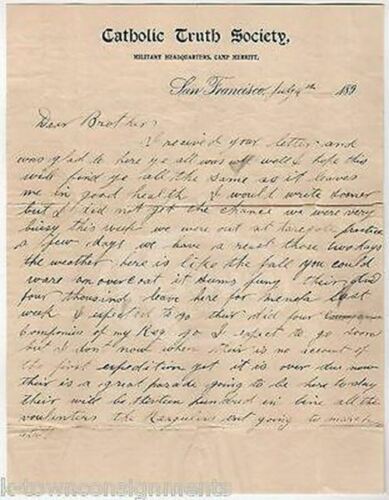 Catholic Truth Society,
MILITANT HEADQUARTERS, CAMP MERRITT,
San Francisco, July 4th 189
Dear Brother
I recived your letter and
was glad to here ye all was well I hope this
will find ye all the same as it leaves
me in good health I would write sooner
but I did not get the chance we were very
bussy this week we were out at targate practice
a few days we have a rest those two days
the weather here is like the fall you could
ware an overcoat it seems funy their did
four thousand leave here for menela last
week I expected to go their did four
Companies of my Reg. go I expect to go soon
but I don't now when their is no account of
the first expedition yet it is over due now
their is a great parade going to be here to day
their will be hundred in line all the
voulinters the Regulars ent going to march
k-townconsignments